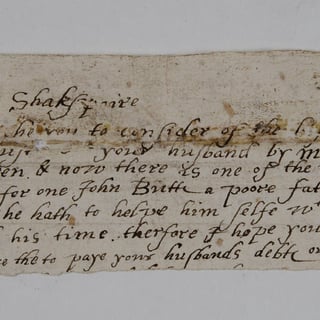 Shakspaire
you to consider of the
your husband by
en & now there is one of the
for one John Butt a poore fat
he hath to helpe him selfe w
his time. therfore I hope you
the to paye your husbands debt